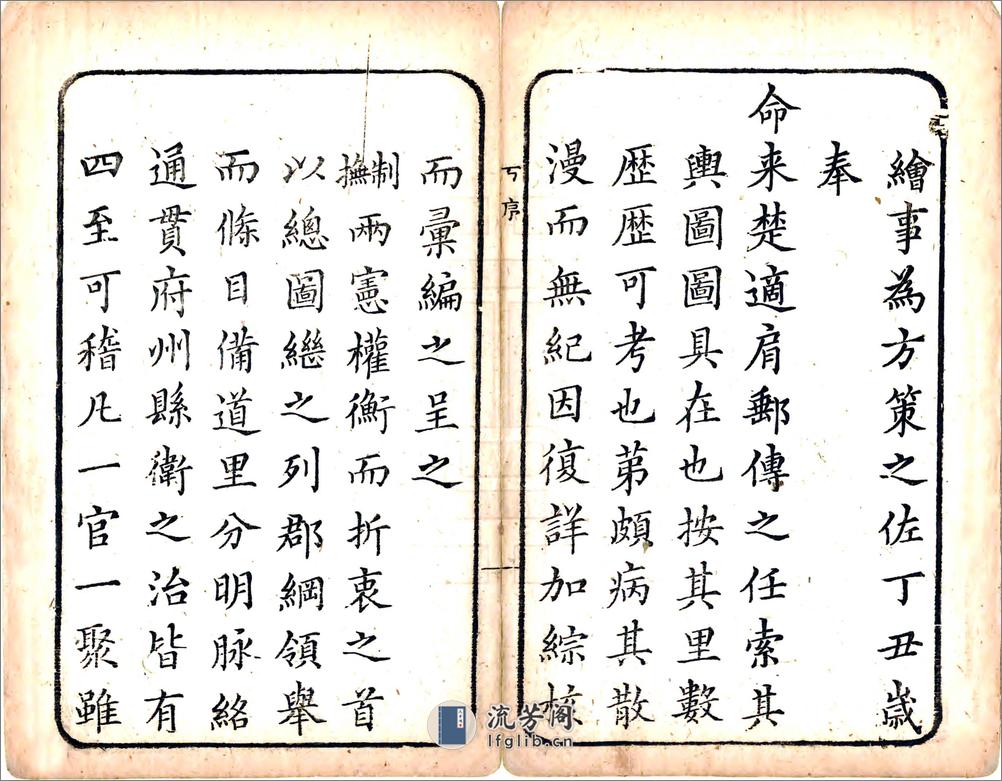 繪事為方策之佐丁丑歲
奉
命来楚適肩郵傳之任索其
輿圖圖具在也按其里數
歴歴可考也苐頗病其散
漫而無紀因復詳加綜核
序
而彙編之呈之
制撫兩憲權衡而折衷之首
以總圖繼之列郡綱領舉
而條目備道里分明脉絡
通貫府州縣衛之治皆有
四至可稽凡一官一聚雖
流芳阁
lfglib.cn